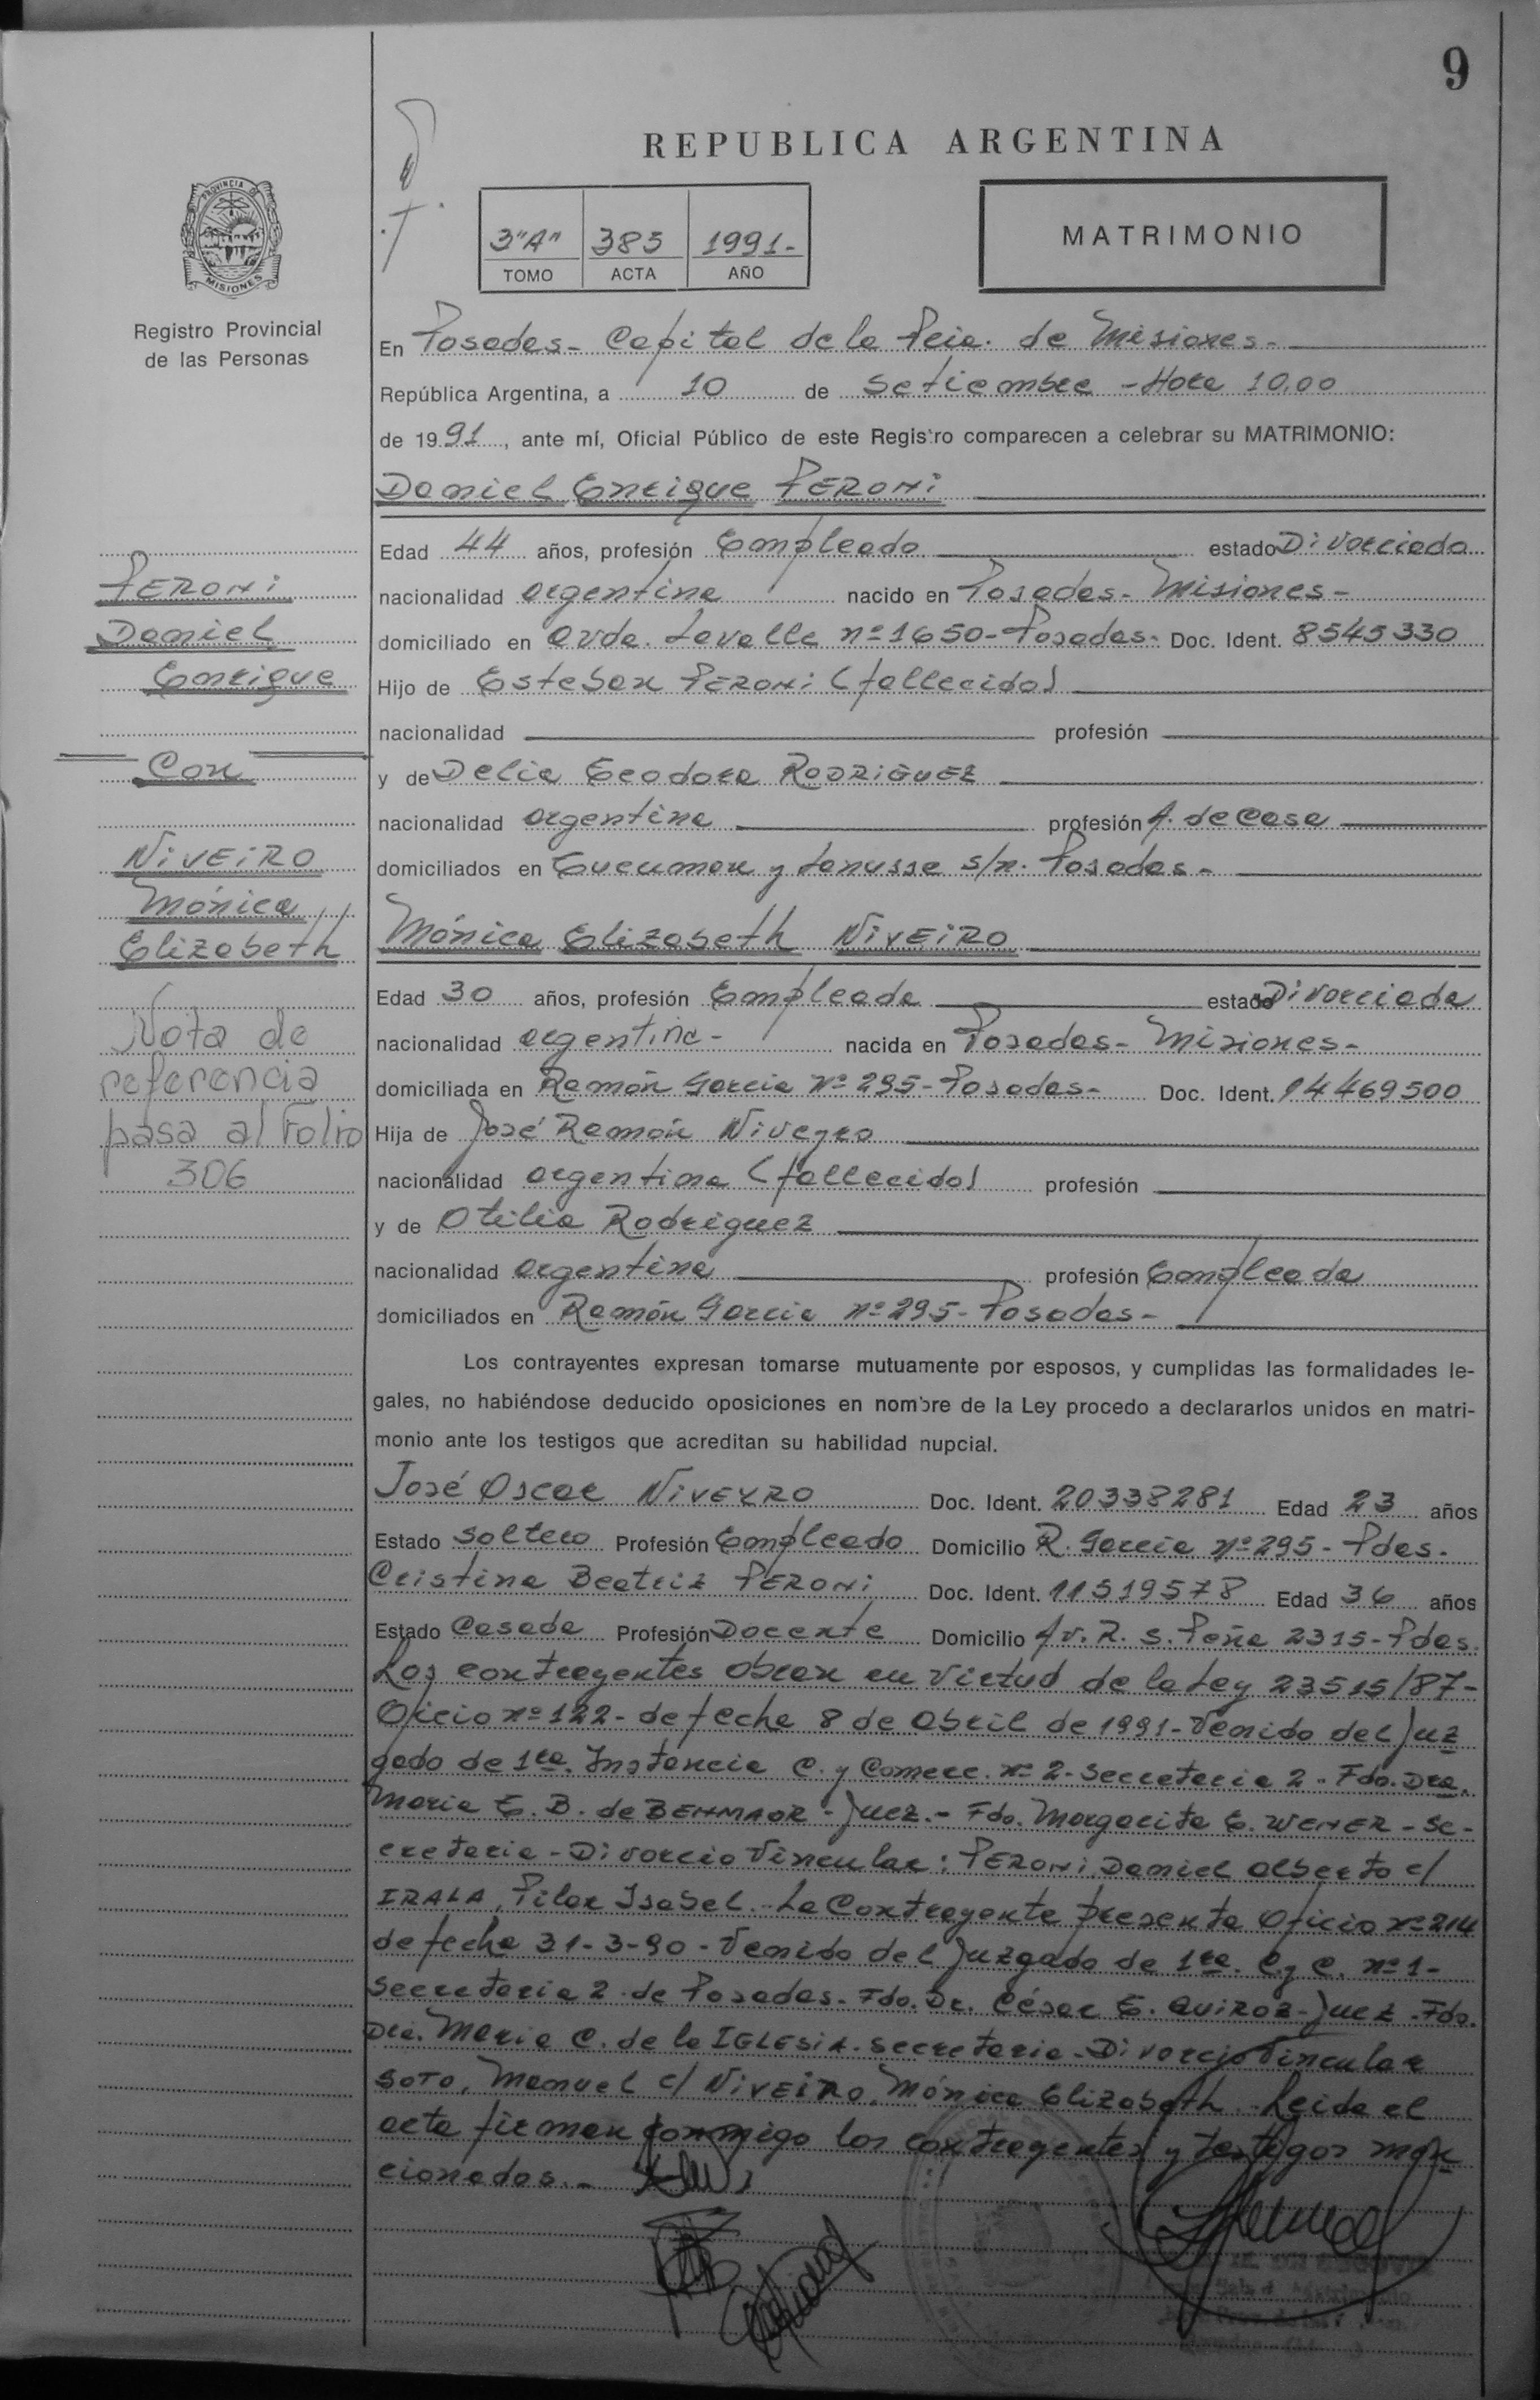 9
REPUBLICA ARGENTINA
PROVINCIA DE
MISIONES
Registro Provincial
de las Personas
3"A" 385 1991-
TOMO ACTA AÑO
MATRIMONIO
En Posadas - Capital de la Pcia. de Misiones-
República Argentina, a 10 de Setiembre - Hora 10,00
de 1991, ante mí, Oficial Público de este Registro comparecen a celebrar su MATRIMONIO:
Daniel Enrique PERONi
Edad 44 años, profesión Empleado estado Divorciado
nacionalidad argentina nacido en Posadas- Misiones-
domiciliado en Avda. Lavalle nº 1650-Posadas- Doc. Ident. 8545330
Hijo de Esteban PERONi (fallecido)
nacionalidad profesión
y de Delia Teodora RODRIGUEZ
nacionalidad argentina profesión A. de Casa
domiciliados en Tucuman y Lanusse s/n. Posadas-
Mónica Elizabeth NIVEIRO
Edad 30 años, profesión Empleada estado Divorciada
nacionalidad argentina- nacida en Posadas- Misiones-
domiciliada en Ramón Garcia Nº 295-Posadas- Doc. Ident. 14469500
Hija de José Ramón Niveyro
nacionalidad argentina (fallecido) profesión
y de Otilia Rodriguez
nacionalidad argentina profesión Empleada
domiciliados en Ramón Garcia nº 295-Posadas-
PERONi
Daniel
Enrique
Con
NIVEIRO
Mónica
Elizabeth
Nota de
referencia
pasa al Folio
306
Los contrayentes expresan tomarse mutuamente por esposos, y cumplidas las formalidades le-
gales, no habiéndose deducido oposiciones en nombre de la Ley procedo a declararlos unidos en matri-
monio ante los testigos que acreditan su habilidad nupcial.
José Oscar NIVEYRO Doc. Ident. 20338281 Edad 23 años
Estado Soltero Profesión Empleado Domicilio R. Garcia nº 295 - Pdas.
Cristina Beatriz PERONi Doc. Ident. 11519578 Edad 36 años
Estado Casada Profesión Docente Domicilio Av. R. S. Peña 2315-Pdas.
Los contrayentes obran en virtud de la Ley 23515/87-
Oficio nº 122- de fecha 8 de Abril de 1991-Venido del Juz
gado de 1ra. Instancia C. y Comerc. nº 2-Secretaria 2- Fdo. Dra.
Maria E. B. de BENMAOR-Juez.- Fdo. Margarita E. WENER-Se-
cretaria-Divorcio Vincular: PERONi Daniel Alberto c/
IRALA, Pilar Isabel. -La Contrayente presenta Oficio nº 214
de fecha 31-3-90-Venido del Juzgado de 1ra. C. y C. nº 1-
Secretaria 2-de Posadas-Fdo. Dr. César E. QUIROZ-Juez-Fdo.
Dra. Maria C. de la IGLESIA-Secretaria-Divorcio Vincular
SOTO, Manuel c/ NIVEIRO, Mónica Elizabeth. Leida el
acta firman conmigo los contrayentes y testigos men
cionados.-